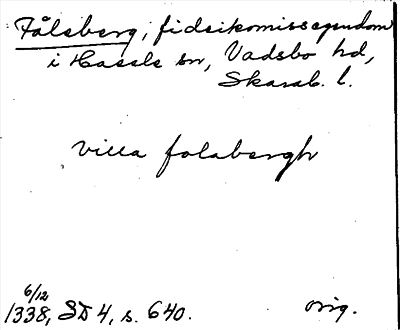 Fålaberg, fideikomissegendom
i Hassle sn, Vadsbo hd,
Skarab. l.
villa folabergh
6/12
1338, SD 4, s. 640. orig.